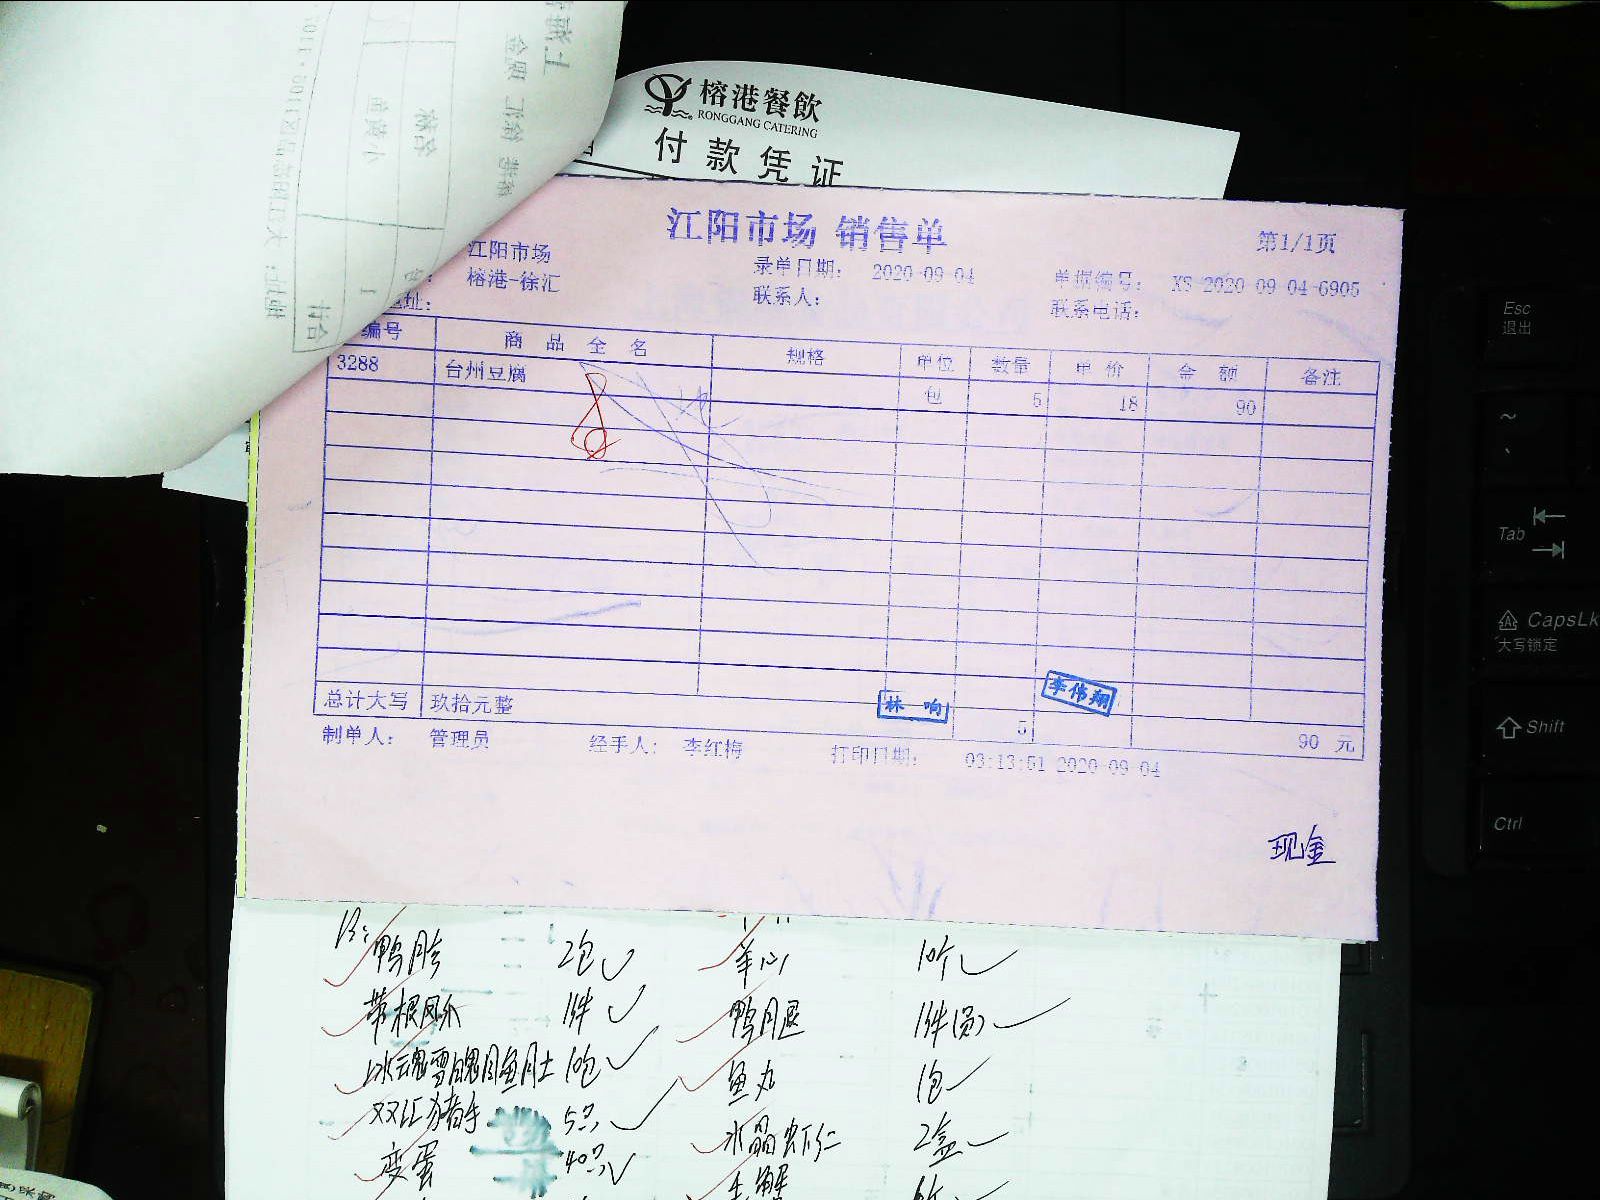 榕港餐飲
RONGGANG CATERING
付款凭证
江阳市场 销售单
第1/1页
江阳市场
录单日期: 2020-09-04
单据编号: XS-2020-09-04-6905
榕港-徐汇
联系人:
联系电话:
址:
编号 商品全名 规格 单位 数量 单价 金额 备注
3288 台州豆腐 包 5 18 90
总计大写 玖拾元整 5 90 元
林响
李伟翔
制单人: 管理员 经手人: 李红梅 打印日期: 03:13:51 2020-09-04
现金
鸭胗 2包 羊心 10个
带根凤爪 1件 鸭腿 1件
10包 鱼丸 1包
双汇猪手 5只 水晶虾仁 2盒
变蛋 40只
Esc
退出
~
Tab
CapsLk
大写锁定
Shift
Ctrl